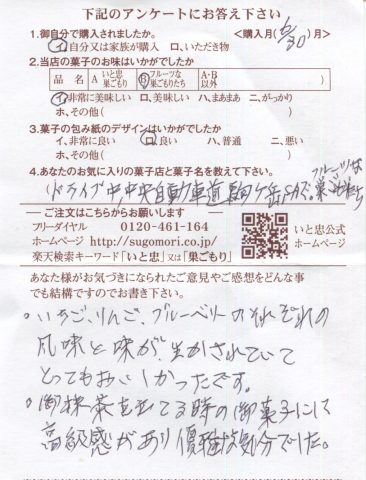 下記のアンケートにお答え下さい
1.御自分で購入されましたか。 <購入月(6/30)月>
イ、自分又は家族が購入 ロ、いただき物
2.当店の菓子のお味はいかがでしたか
品 名 A いと忠巣ごもり B フルーツな巣ごもりたち A・B以外
イ、非常に美味しい ロ、美味しい ハ、まあまあ ニ、がっかり
ホ、その他( )
3.菓子の包み紙のデザインはいかがでしたか
イ、非常に良い ロ、良い ハ、普通 ニ、悪い
ホ、その他( )
4.あなたのお気に入りの菓子店と菓子名を教えて下さい。
(ドライブ中,中央自動車道駒ケ岳SAで、フルーツな巣ごもりたち
ご注文はこちらからお願いします
フリーダイヤル 0120-461-164
ホームページ http://sugomori.co.jp/
楽天検索キーワード「いと忠」又は「巣ごもり」
いと忠公式
ホームページ
あなた様がお気づきになられたご意見やご感想をどんな事
でも結構ですのでお書き下さい。
。いちご、りんご、ブルーベリーのそれぞれの
風味と味が、生かされていて
とってもおいしかったです。
。御抹茶を立てる時の御菓子にして
高級感があり優雅な気分でした。